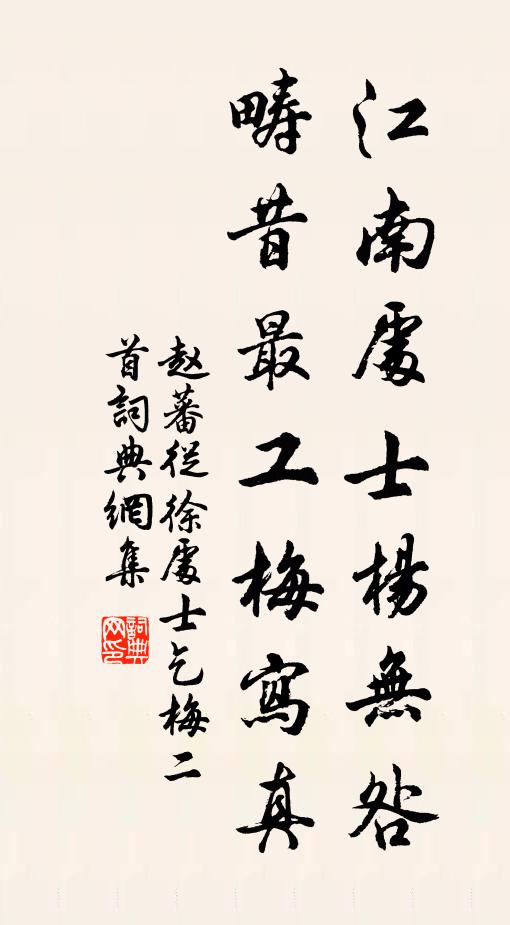 江南處士楊無咎
疇昔最工梅寫真
赵蕃從徐處士乞梅二
首詞典網集
詞典
网印